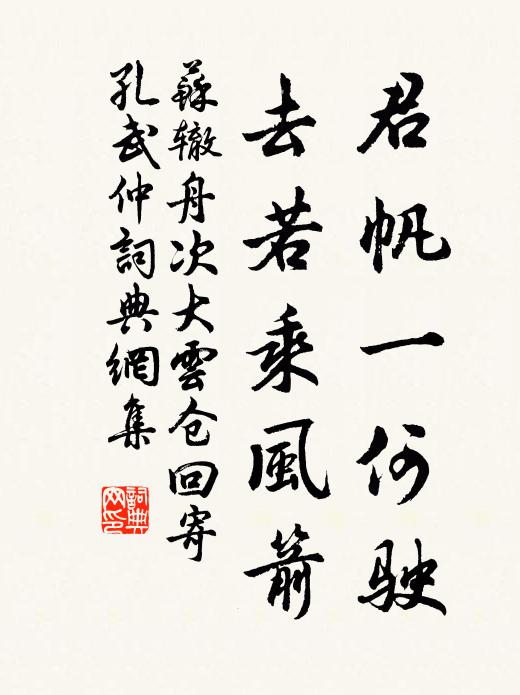 君帆一何驶
去若乘風箭
蘇辙舟次大雲仓回寄
孔武仲詞典網集
詞典
网印